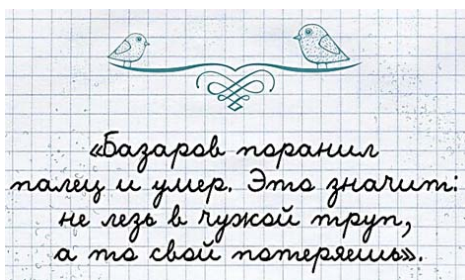 «Базаров поранил
палец и умер. Это значит:
не лезь в чужой труп,
а то свой потеряешь».